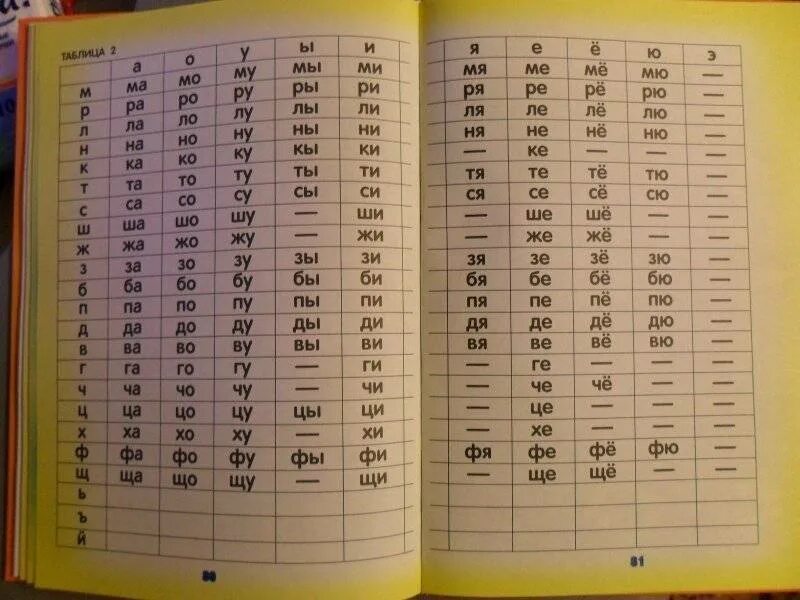 ТАБЛИЦА 2
а о у ы и
м ма мо му мы ми
р ра ро ру ры ри
л ла ло лу лы ли
н на но ну ны ни
к ка ко ку кы ки
т та то ту ты ти
с са со су сы си
ш ша шо шу — ши
ж жа жо жу — жи
з за зо зу зы зи
б ба бо бу бы би
п па по пу пы пи
д да до ду ды ди
в ва во ву вы ви
г га го гу — ги
ч ча чо чу — чи
ц ца цо цу цы ци
х ха хо ху — хи
ф фа фо фу фы фи
щ ща що щу — щи
ь
ъ
й
80
я е ё ю э
мя ме мё мю —
ря ре рё рю —
ля ле лё лю —
ня не нё ню —
— ке — — —
тя те тё тю —
ся се сё сю —
— ше шё — —
— же жё — —
зя зе зё зю —
бя бе бё бю —
пя пе пё пю —
дя де дё дю —
вя ве вё вю —
— ге — — —
— че чё — —
— це — — —
— хе — — —
фя фе фё фю —
— ще щё — —
81